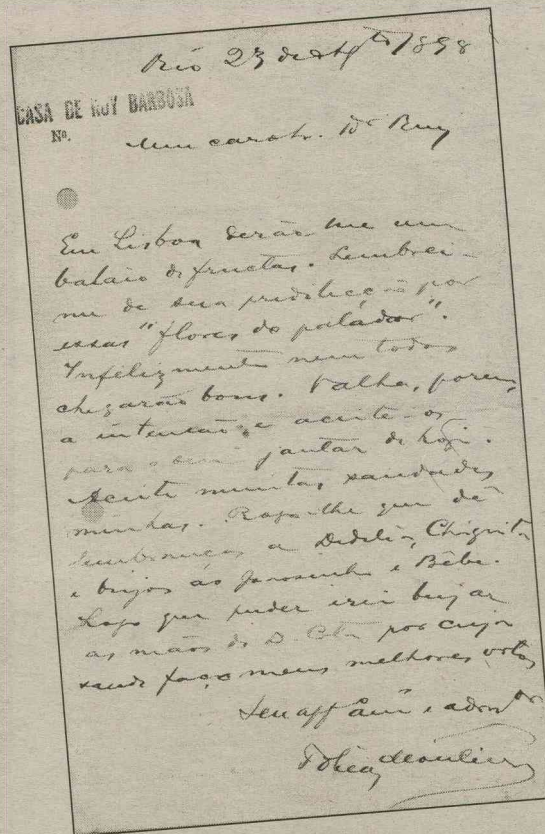 Rio 23 de Agto 1898
CASA DE RUY BARBOSA
Nº.
Meu caro Dr. Ruy
Em Lisboa derão me um
balaio de fructas. Lembrei-
me de sua predilecção por
essas "flores do paladar".
Infelizmente nem todos
chegarão bons. Valha, porem,
a intenção, e aceite-os
para o seu jantar de hoje.
Aceite muitas saudades
minhas. Rogo-lhe que dê
lembranças a Dedelia, Chiquita
e beijos ao Joãosinho e Bêbe.
Logo que puder irei beijar
as mãos de D. Cota por cuja
saude faço meus melhores votos
Seu aff amº e adordor